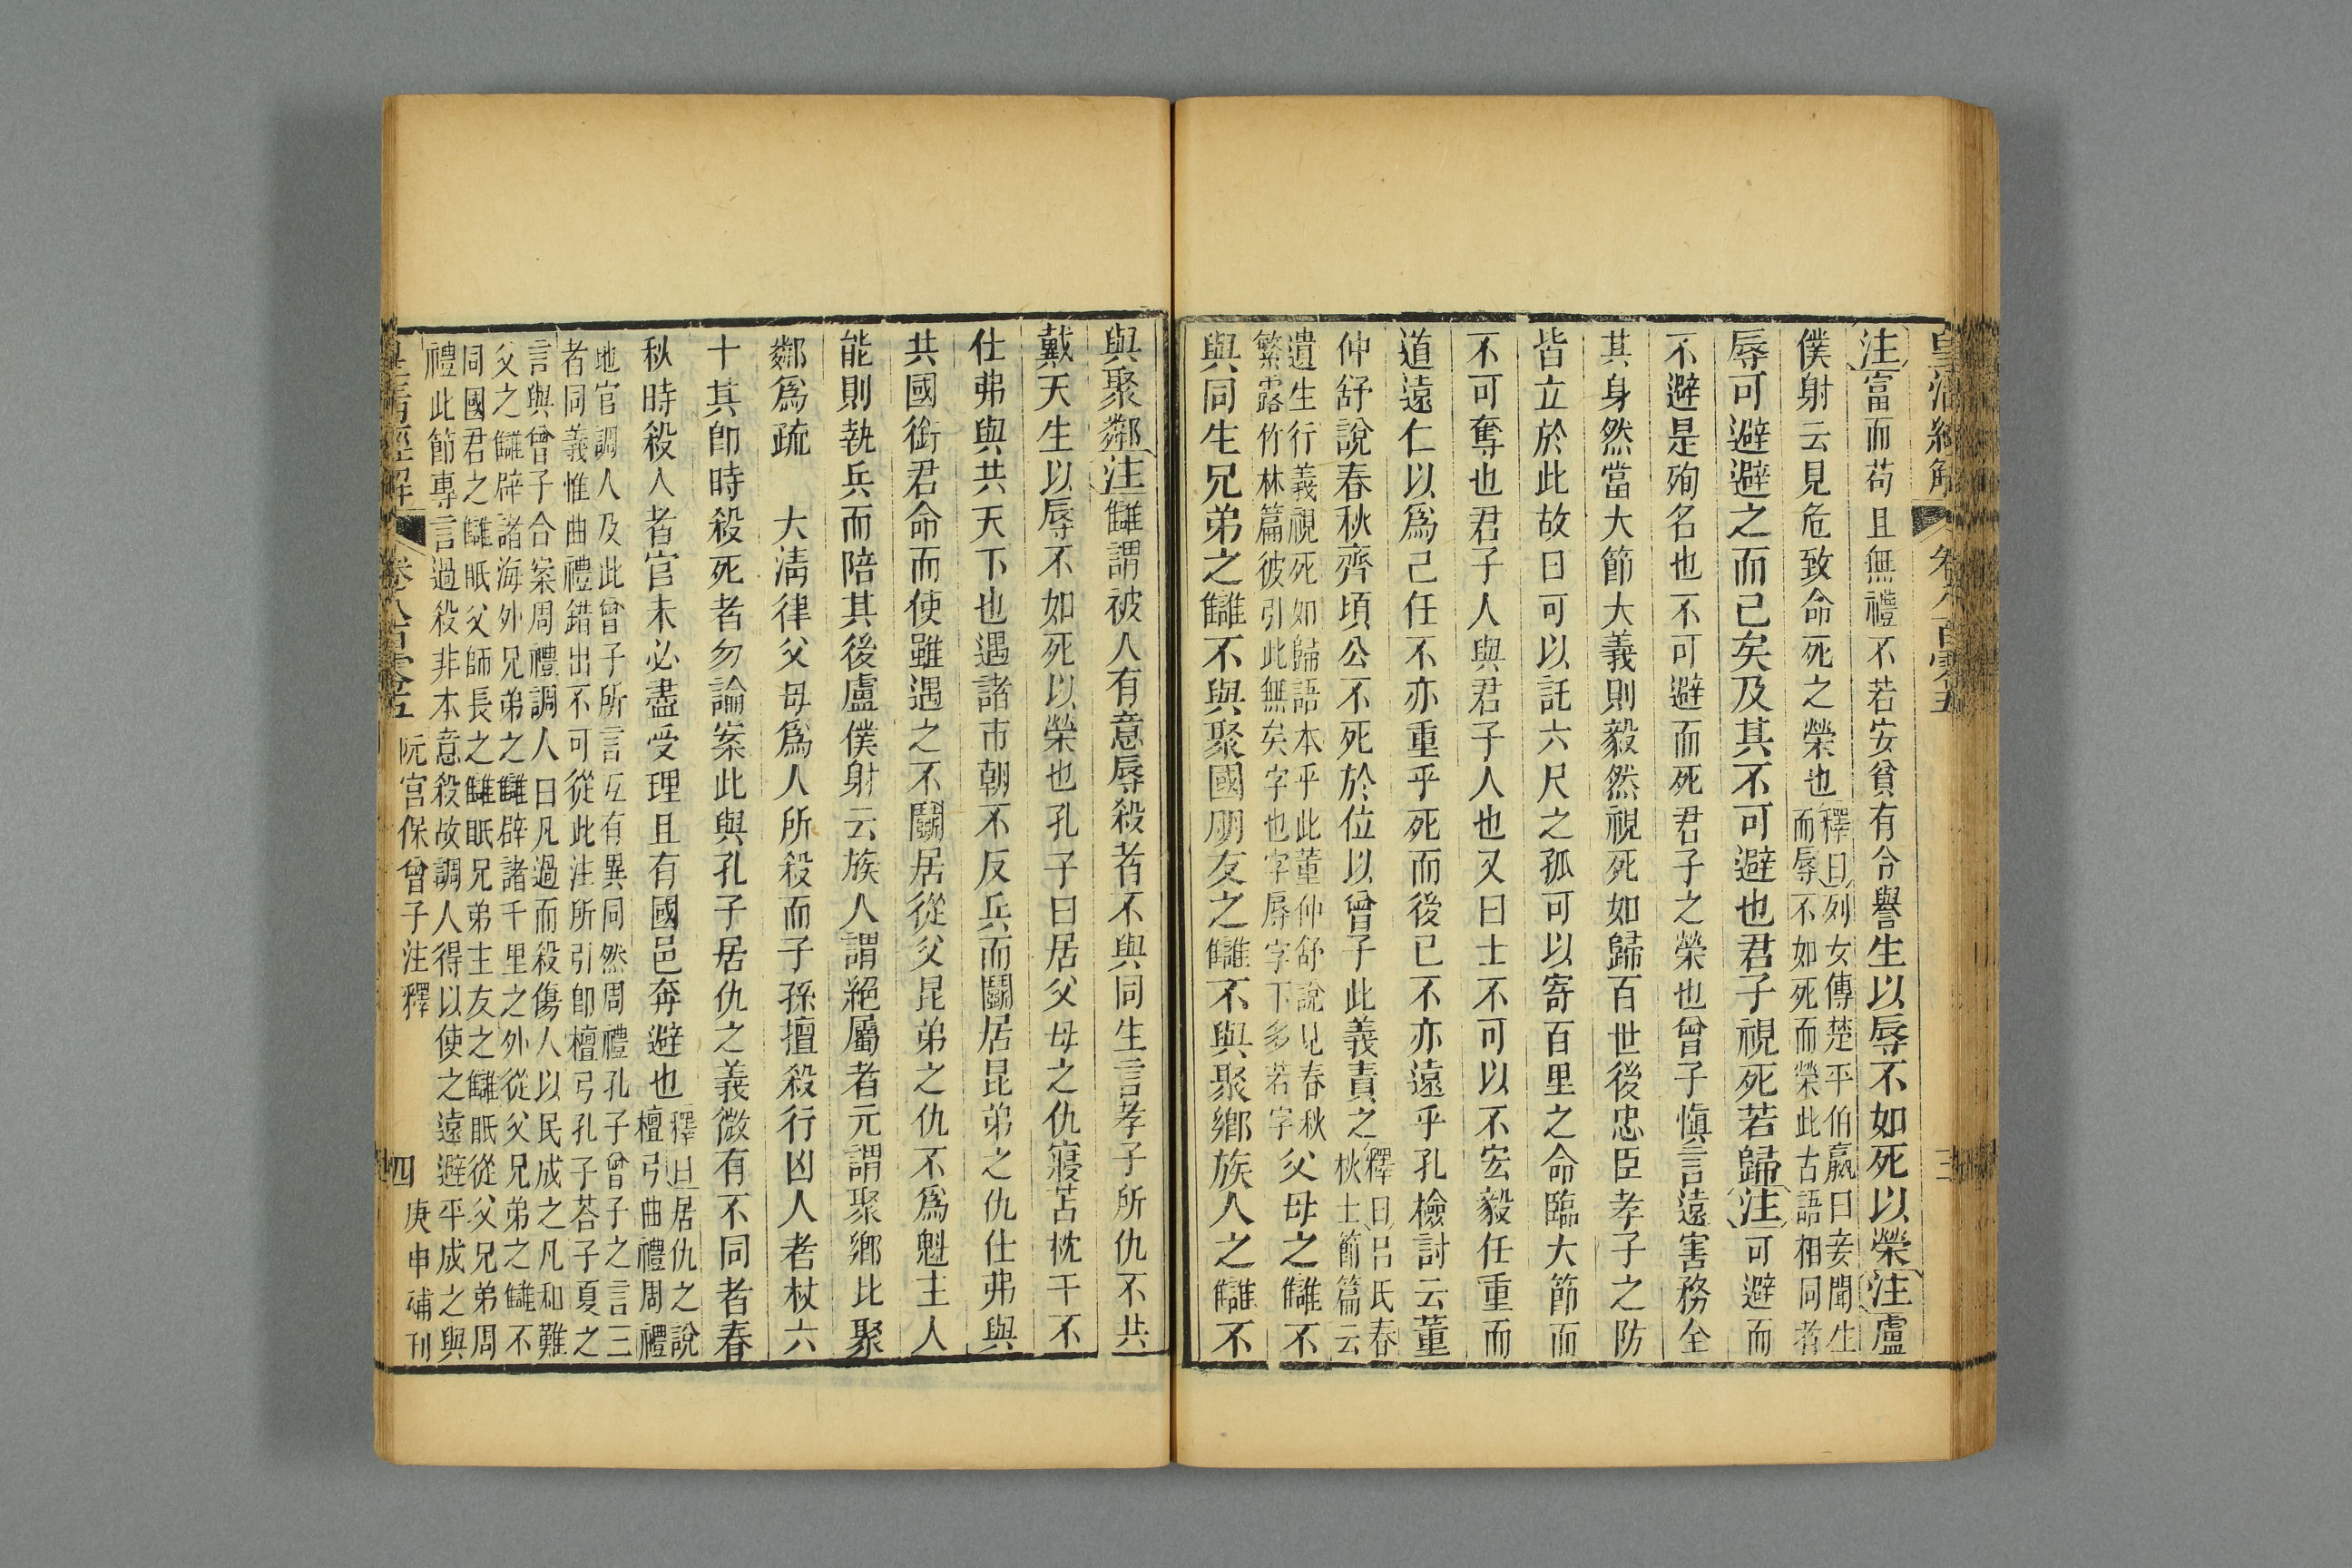 皇清經解 卷八百零五 三
注富而苟且無禮不若安貧有令譽生以辱不如死以榮注盧
僕射云見危致命死之榮也釋曰列女傳楚平伯嬴曰妾聞生
而辱不如死而榮此古語相同者
辱可避避之而已矣及其不可避也君子視死若歸注可避而
不避是殉名也不可避而死君子之榮也曾子愼言遠害務全
其身然當大節大義則毅然視死如歸百世後忠臣孝子之防
皆立於此故曰可以託六尺之孤可以寄百里之命臨大節而
不可奪也君子人與君子人也又曰士不可以不宏毅任重而
道遠仁以爲己任不亦重乎死而後已不亦遠乎孔檢討云董
仲舒說春秋齊頃公不死於位以曾子此義責之釋曰呂氏春
秋士節篇云
遺生行義視死如歸語本乎此董仲舒說見春秋
繁露竹林篇彼引此無矣字也字辱字下多若字父母之讎不
與同生兄弟之讎不與聚國朋友之讎不與聚鄉族人之讎不
與聚鄰注讎謂被人有意辱殺者不與同生言孝子所仇不共
戴天生以辱不如死以榮也孔子曰居父母之仇寢苫枕干不
仕弗與共天下也遇諸市朝不反兵而鬭居昆弟之仇仕弗與
共國銜君命而使雖遇之不鬭居從父昆弟之仇不爲魁主人
能則執兵而陪其後盧僕射云族人謂絕屬者元謂聚鄉比聚
鄰爲疏 大淸律父母爲人所殺而子孫擅殺行凶人者杖六
十其卽時殺死者勿論案此與孔子居仇之義微有不同者春
秋時殺人者官未必盡受理且有國邑奔避也釋曰居仇之說
檀弓曲禮周禮
地官調人及此曾子所言互有異同然周禮孔子曾子之言三
者同義惟曲禮錯出不可從此注所引卽檀弓孔子荅子夏之
言與曾子合案周禮調人曰凡過而殺傷人以民成之凡和難
父之讎辟諸海外兄弟之讎辟諸千里之外從父兄弟之讎不
同國君之讎眡父師長之讎眡兄弟主友之讎眡從父兄弟周
禮此節專言過殺非本意殺故調人得以使之遠避平成之與
皇清經解 卷八百零五 阮宮保曾子注釋 四 庚申補刊